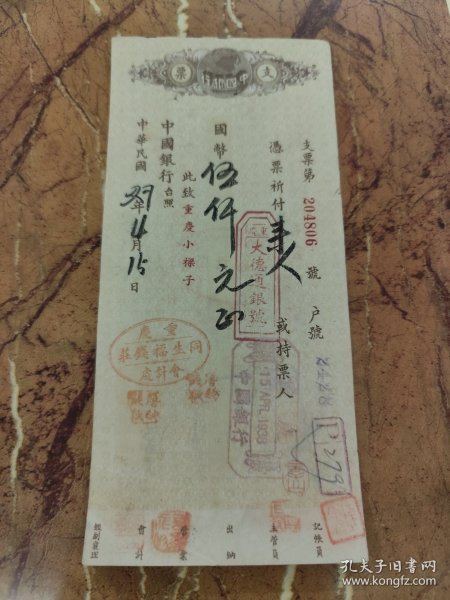 支票
中國銀行
支票第 204806 號 户號
憑票祈付来人或持票人
國幣伍仟元正
此致重慶小樑子
中國銀行台照
中華民國29年4月15日
重慶
大德通銀號
15 APR 1938
中國銀行
重慶
同生福錢莊
會計處
記帳員
主管員
出納
營業
會計
孔夫子旧书网
www.kongfz.com